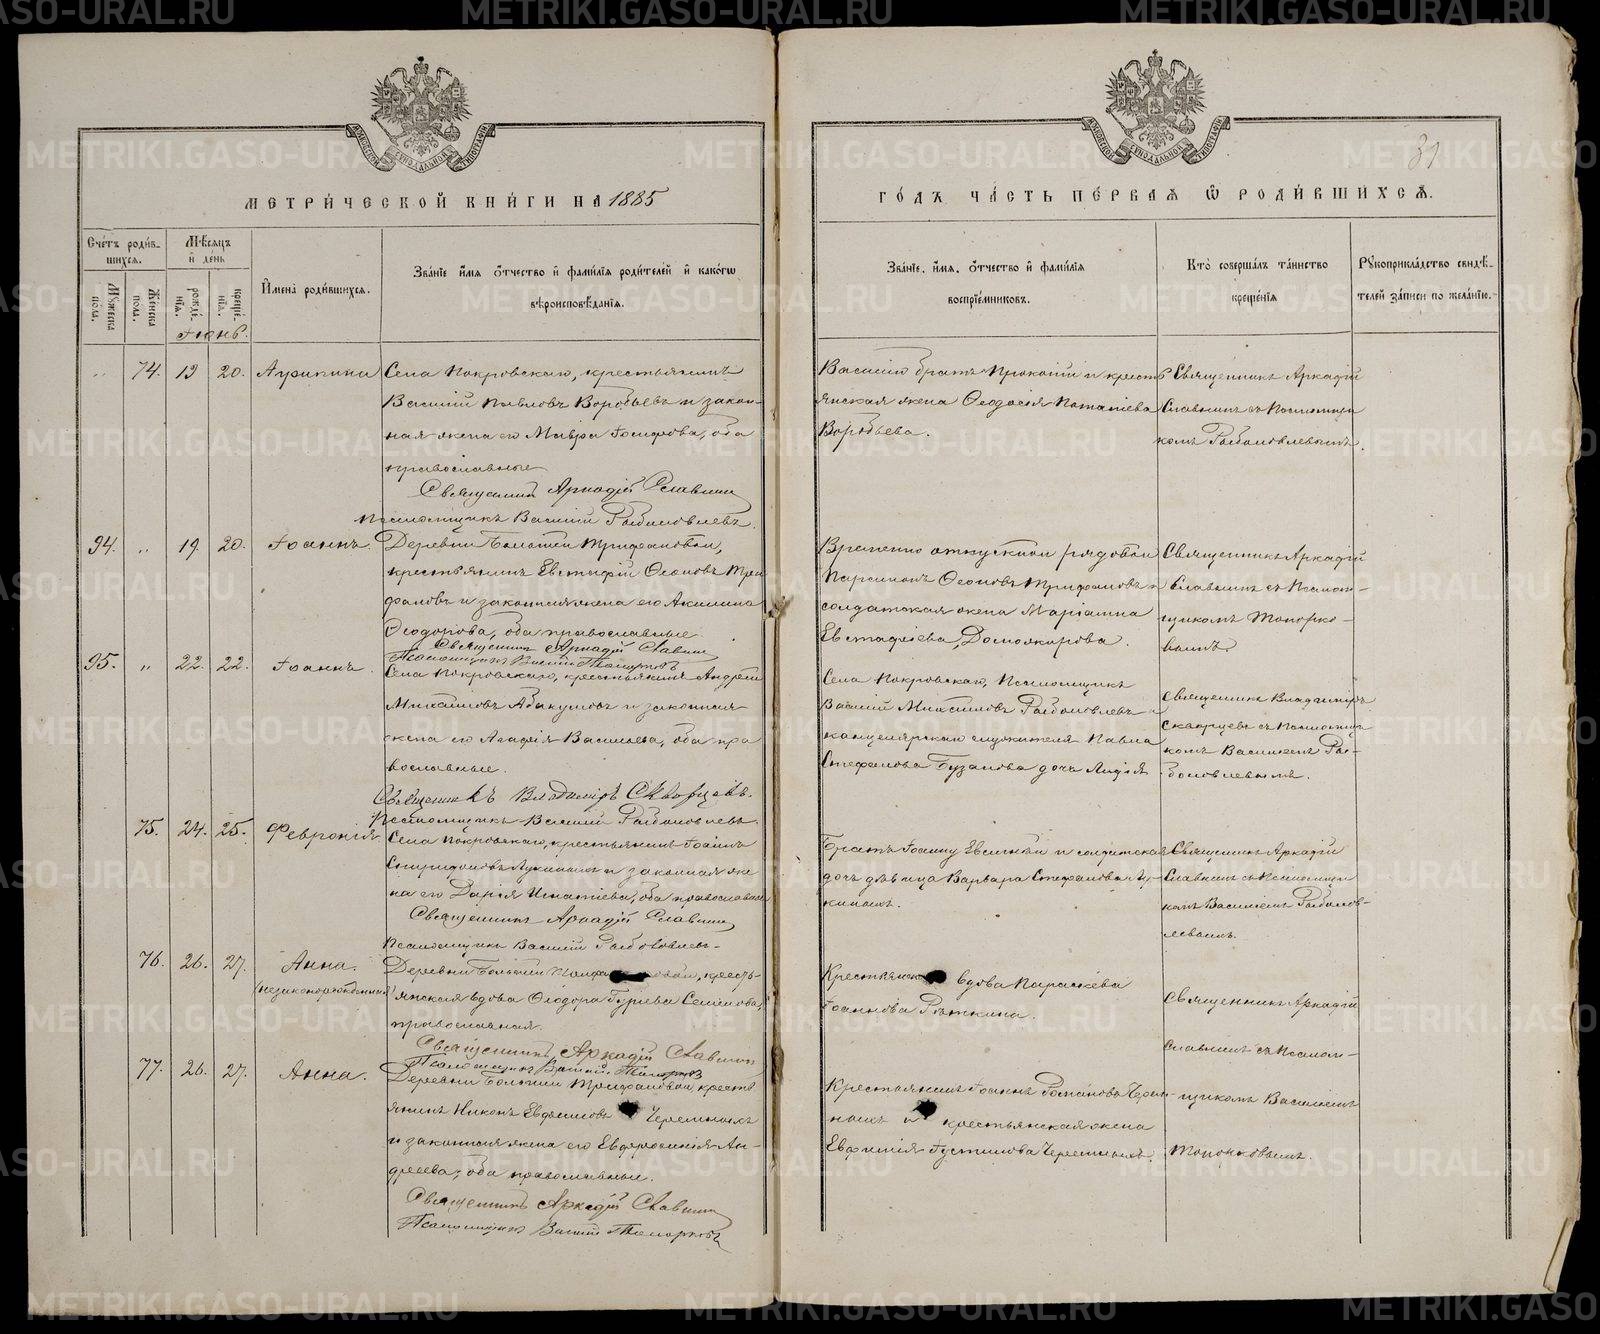 МЕТРИ́ЧЕСКОЙ КНИ́ГИ НА 1885
ГО́ДЪ ЧА́СТЬ ПЕ́РВАЯ Ѡ РОДИ́ВШИХСѦ.
31
Сче́тъ роди́в-
шихсѧ.
Мꙋжеска
по́ла.
Же́нска
по́ла.
Мѣ́сѧцъ
и҆ де́нь
рожде́-
нїѧ.
креще́-
нїѧ.
Іюнь.
И҆мена̀ роди́вшихсѧ.
Зва́нїе и҆́мѧ ѻ҆́тчество и҆ фами́лїѧ роди́телей и҆ како́гѡ
вѣроисповѣ́данїѧ.
Зва́нїе, и҆́мѧ, ѻ҆́тчество и҆ фами́лїѧ
воспрїе́мниковъ.
Кто̀ соверша́лъ та́инство
креще́нїѧ
Рꙋкоприкла́дство свидѣ́-
телей за́писи по жела́нїю.
74. 19 20.
Села Покровскаго, крестьянинъ
Василій Павловъ Воробьевъ и закон-
ная жена его Мавра Іосифова, оба
православные
Священникъ Аркадій Славнинъ
Псаломщикъ Василій Рыболовлевъ
Василію братъ Прокопій и кресть
янская жена Ѳеодосія Потапіева
Воробьева.
Священникъ Аркадій
Славнинъ съ Псаломщи
комъ Рыболовлевымъ.
94. „ 19. 20. Іоаннъ.
Деревни Большой Трифановой,
крестьянинъ Евстафій Ѳеоновъ Три
фановъ и законная жена его Акилина
Ѳеодорова, оба православные
Священникъ Аркадій Славнинъ
Псаломщикъ Василій Топорковъ
Временно отпускной рядовой
Парѳионъ Ѳеоновъ Трифановъ и
солдатская жена Маріамна
Евстафіева Доможирова.
Священникъ Аркадій
Славнинъ съ Псалом-
щикомъ Топорко-
вымъ
95. „ 22. 22. Іоаннъ.
Села Покровскаго, крестьянинъ Андрей
Михаиловъ Абакумовъ и законная
жена его Агафія Васильева, оба пра
вославные.
Священникъ Владиміръ Скворцевъ.
Псаломщикъ Василій Рыболовлевъ
Села Покровскаго, Псаломщикъ
Василій Михаиловъ Рыболовлевъ и
канцелярскаго служителя Павла
Стефанова Бузанова дочь Лидія
Священникъ Владиміръ
Скворцевъ съ Псаломщи
комъ Василіемъ Ры-
боловлевымъ.
75. 24. 25. Февронія
Села Покровскаго, крестьянинъ Іоаннъ
Спиридоновъ Лукиныхъ и законная же
на его Дарія Игнатіева, оба православные
Священникъ Аркадій Славнинъ
Псаломщикъ Василій Рыболовлевъ
Братъ Іоанну Евсигній и солдатская
дочь дѣвица Варвара Стефанова Лу-
киныхъ.
Священникъ Аркадій
Славнинъ съ Псаломщи
комъ Василіемъ Рыболов-
левымъ.
76. 26. 27. Анна.
(незаконорожденная)
Деревни Большой Трифановой, кресть-
янская вдова Ѳеодора Гурьева Семенова,
православная.
Священникъ Аркадій Славнинъ
Псаломщикъ Василій Топорковъ
Крестьянская вдова Параскева
Іоаннова Рѣткина.
Священникъ Аркадій
Славнинъ съ Псалом-
77. 26. 27. Анна.
Деревни Большой Трифановой, кресть
янинъ Никонъ Евфимовъ Черемныхъ
и законная жена его Евфросинія Ан-
дреева, оба православные.
Священникъ Аркадій Славнинъ
Псаломщикъ Василій Топорковъ
Крестьянинъ Іоаннъ Романовъ Черем-
ныхъ и крестьянская жена
Евфимія Густинова Черемныхъ.
щикомъ Василіемъ
Топорковымъ.
METRIKI.GASO-URAL.RU